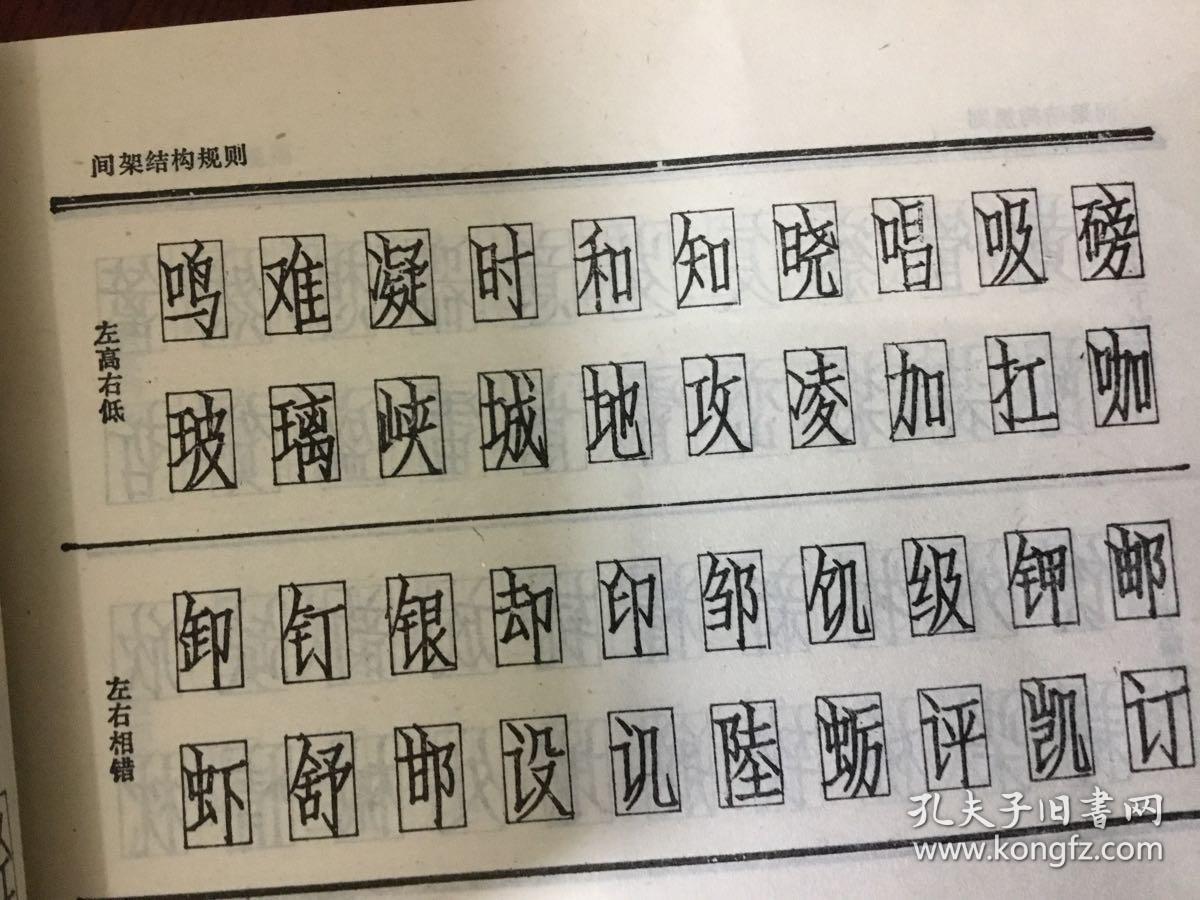 间架结构规则
左高右低
鸣难凝时和知晓唱吸磅
玻璃峡城地攻凌加扛咖
左右相错
卸钉银却印邹饥级钾邮
虾舒邯设讥陸蛎评凯订
孔夫子旧书网
www.kongfz.com